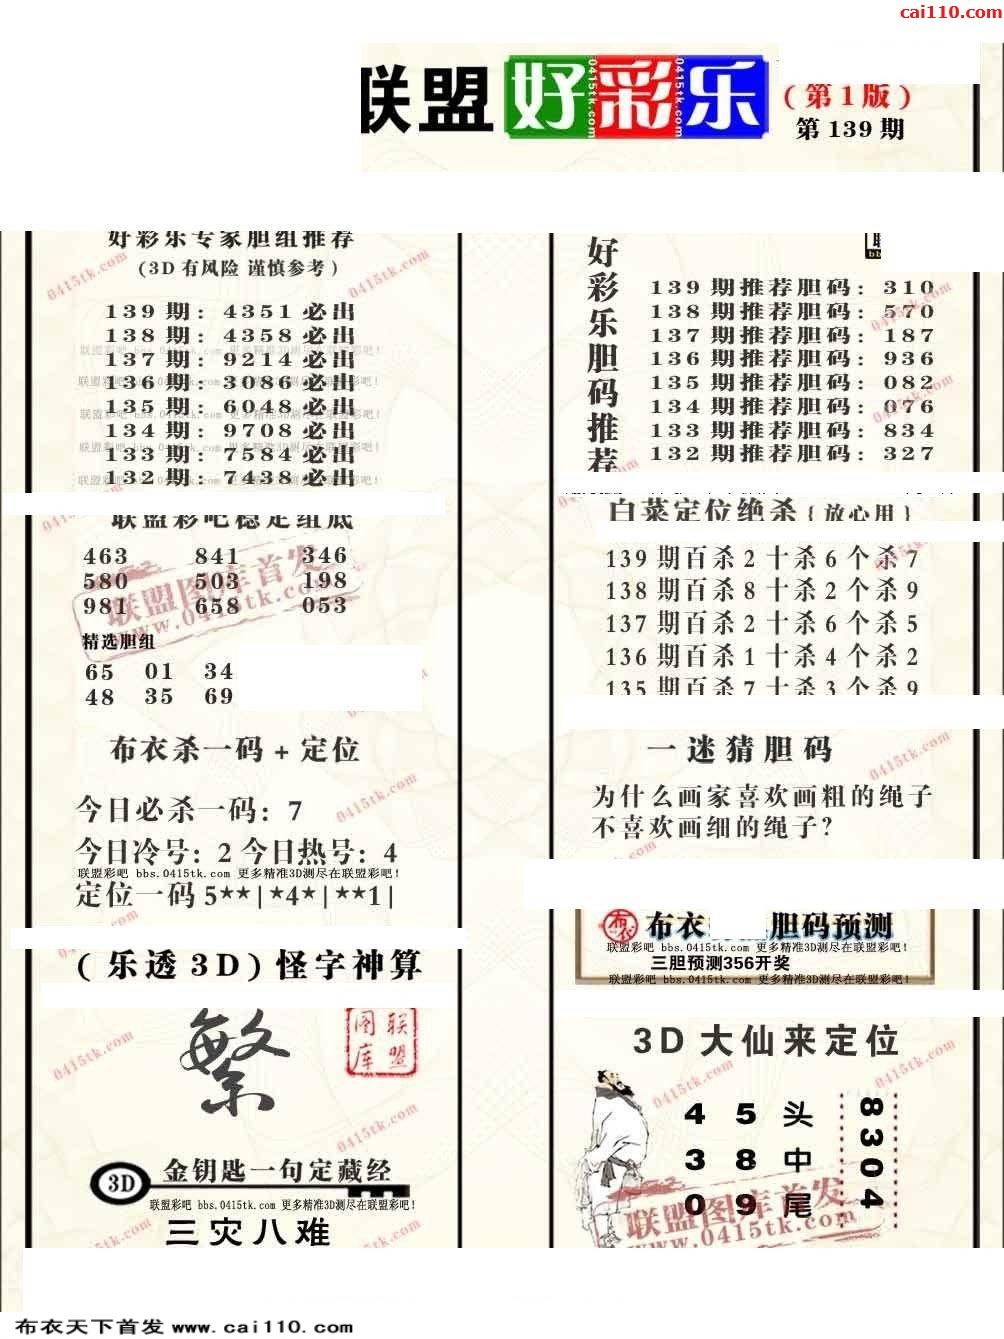 cai110.com
联盟 好彩乐
(第1版)
第139期
好彩乐专家胆组推荐
(3D有风险 谨慎参考)
139期: 4351必出
138期: 4358必出
137期: 9214必出
136期: 3086必出
135期: 6048必出
134期: 9708必出
133期: 7584必出
132期: 7438必出
联盟彩吧稳定组底
463 841 346
580 503 198
981 658 053
联盟图库首发
www.0415tk.com
精选胆组
65 01 34
48 35 69
布衣杀一码+定位
今日必杀一码: 7
今日冷号: 2 今日热号: 4
联盟彩吧 bbs.0415tk.com 更多精准3D测尽在联盟彩吧!
定位一码5**|*4*|**1|
(乐透3D)怪字神算
繁
联盟图库
3D 金钥匙一句定藏经
联盟彩吧 bbs.0415tk.com 更多精准3D测尽在联盟彩吧!
三灾八难
好彩乐胆码推荐
139期推荐胆码: 310
138期推荐胆码: 570
137期推荐胆码: 187
136期推荐胆码: 936
135期推荐胆码: 082
134期推荐胆码: 076
133期推荐胆码: 834
132期推荐胆码: 327
白菜定位绝杀{放心用}
139期百杀2十杀6个杀7
138期百杀8十杀2个杀9
137期百杀2十杀6个杀5
136期百杀1十杀4个杀2
135期百杀7十杀3个杀9
一迷猜胆码
为什么画家喜欢画粗的绳子
不喜欢画细的绳子?
布衣 布衣 胆码预测
联盟彩吧 bbs.0415tk.com 更多精准3D测尽在联盟彩吧!
三胆预测356开奖
联盟彩吧 bbs.0415tk.com 更多精准3D测尽在联盟彩吧!
3D大仙来定位
4 5 头
3 8 中
0 9 尾
8304
联盟图库首发
www.0415tk.com
布衣天下首发 www.cai110.com